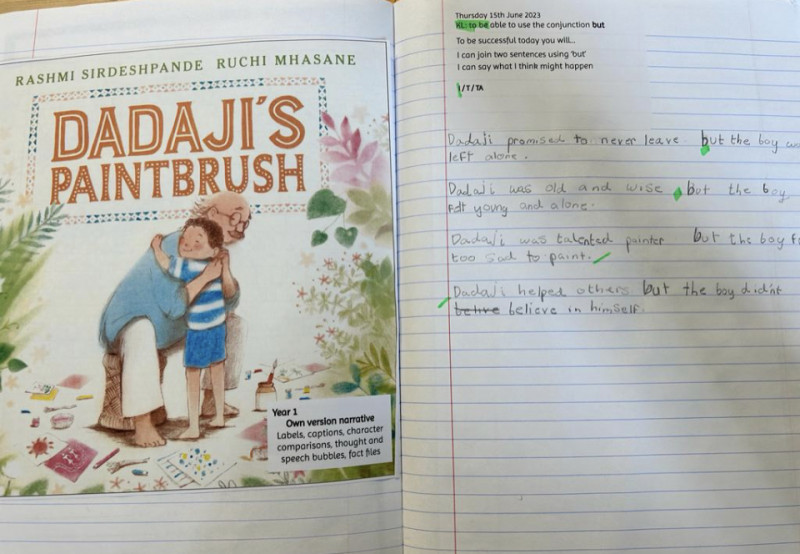 RASHMI SIRDESHPANDE RUCHI MHASANE
DADAJI'S
PAINTBRUSH
Year 1
Own version narrative
Labels, captions, character
comparisons, thought and
speech bubbles, fact files
Thursday 15th June 2023
KL: to be able to use the conjunction but
To be successful today you will...
I can join two sentences using 'but'
I can say what I think might happen
I/T/TA
Dadaji promised to never leave but the boy
left alone.
Dadaji was old and wise but the boy
felt young and alone.
Dadaji was talented painter but the boy
too sad to paint.
Dadaji helped others but the boy didn't
belive believe in himself.